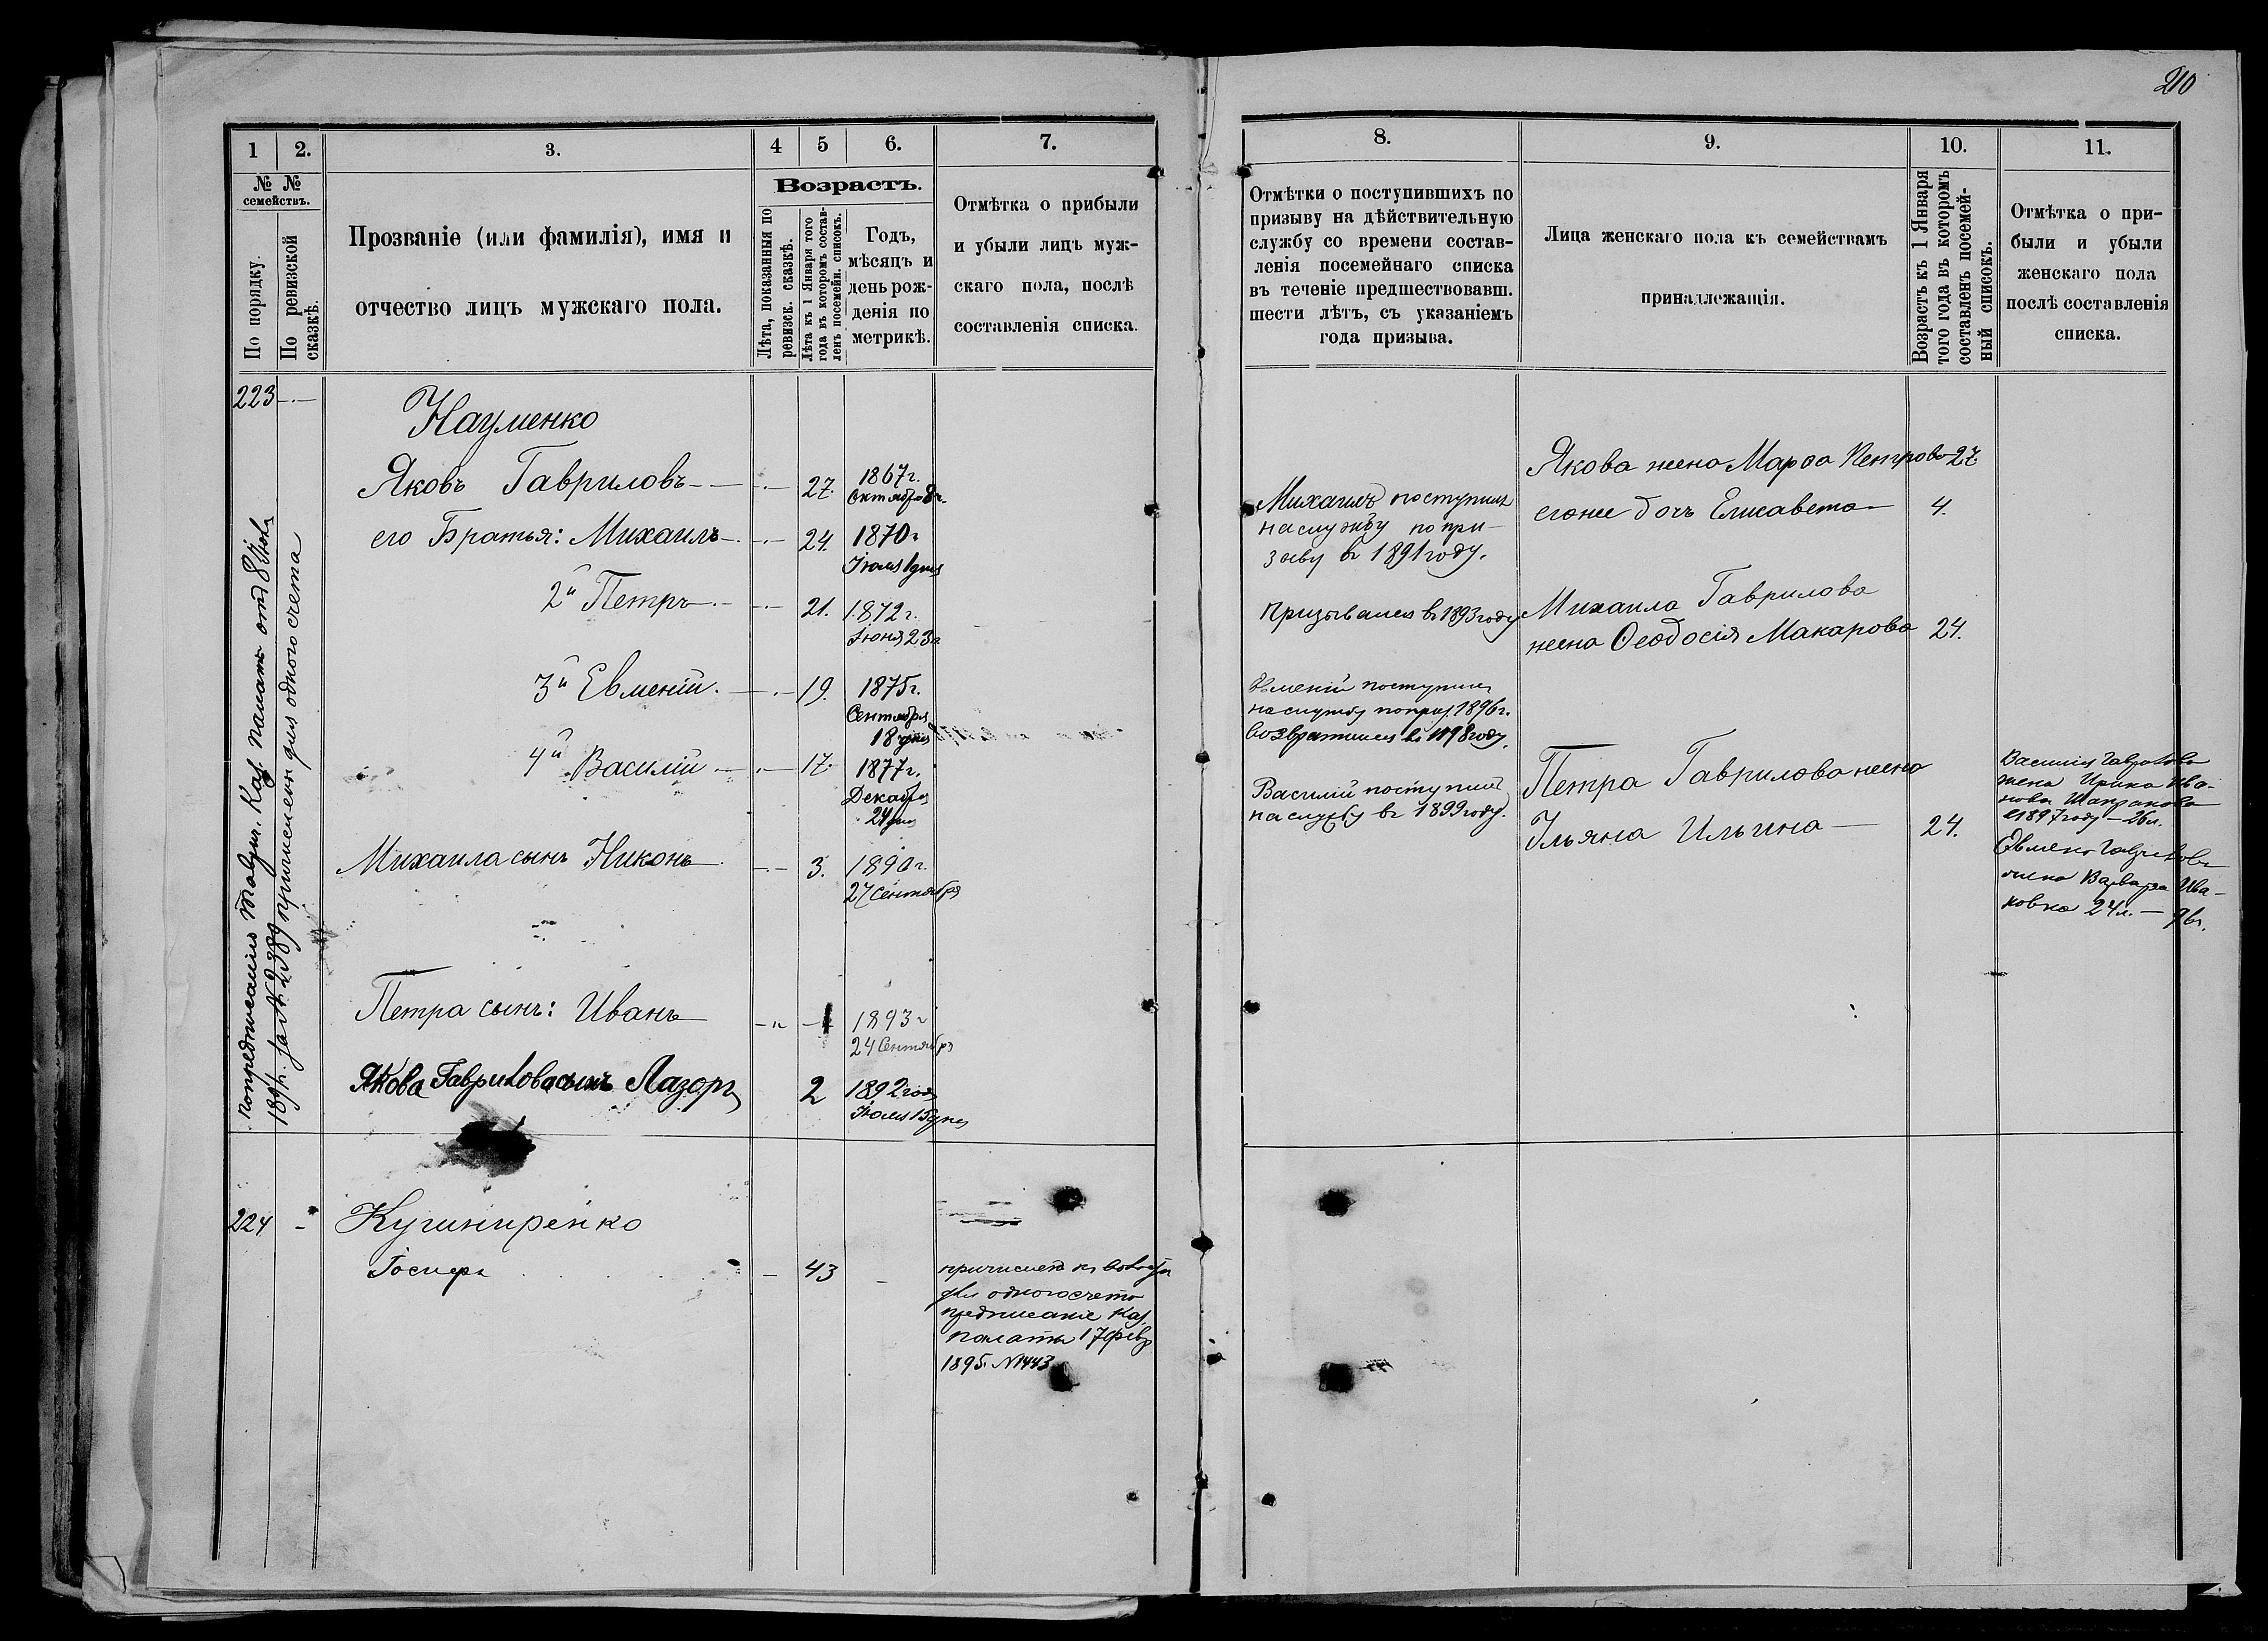 210
1
2.
3.
4
5
6.
7.
8.
9.
10.
11.
№ №
семействъ.
По порядку.
По ревизской
сказкѣ.
Прозваніе (или фамилія), имя и
отчество лицъ мужскаго пола.
Возрастъ.
Лѣта, показанныя по
ревизск. сказкѣ.
Лѣта къ 1 Января того
года въ которомъ состав-
ленъ посемейн. списокъ.
Годъ,
мѣсяцъ и
день рож-
денія по
метрикѣ.
Отмѣтка о прибыли
и убыли лицъ муж-
скаго пола, послѣ
составленія списка.
Отмѣтки о поступившихъ по
призыву на дѣйствительную
службу со времени состав-
ленія посемейнаго списка
въ теченіе предшествовавш.
шести лѣтъ, съ указаніемъ
года призыва.
Лица женскаго пола къ семействамъ
принадлежащія.
Возрастъ къ 1 Января
того года въ которомъ
составленъ посемей-
ный списокъ.
Отмѣтка о при-
были и убыли
женскаго пола
послѣ составленія
списка.
223
Науменко
Яковъ Гавриловъ 27. 1867г.
Октября 8
его Братья: Михаилъ 24. 1870г
Іюля 1 дня
2й Петръ 21. 1872г.
Іюня 23
3й Евменій. 19. 1875г.
Сентября
18 дня
4й Василій 17. 1877г.
Декабря
24 дня
Михаила сынъ Никонъ 3. 1890г.
27 Сентября
Петра сынъ: Иванъ 1 1893г
24 Сентября
Якова Гаврилова сынъ Лазорь 2 1892 года
Іюля 15 дня
По предписанію Таврич. Каз. Палаты отъ 8 Іюля
189 г. за № 2389 причислен для одного счета
Михаилъ поступилъ
на службу по при-
зыву въ 1891 году.
Призывался въ 1893 году
Евменій поступилъ
на службу по приз. 1896г.
Возвратился въ 1898 году.
Василій поступилъ
на службу въ 1899 году.
Якова жена Марѳа Петрова 27.
его же дочь Елисавета 4.
Михаила Гаврилова
жена Ѳеодосія Макарова 24.
Петра Гаврилова жена
Ульяна Ильина 24.
Василія Гаврилова
жена Ирина Ива-
нова
в 1897 году - 26 л.
Евмена Гаврилова
жена Варвара Ива-
новна 24 л.
224
Кушниренко
Іосифъ 43
причисленъ къ волости
для одного счета
предписаніе Каз.
палаты 17 февр
1895. № 1443